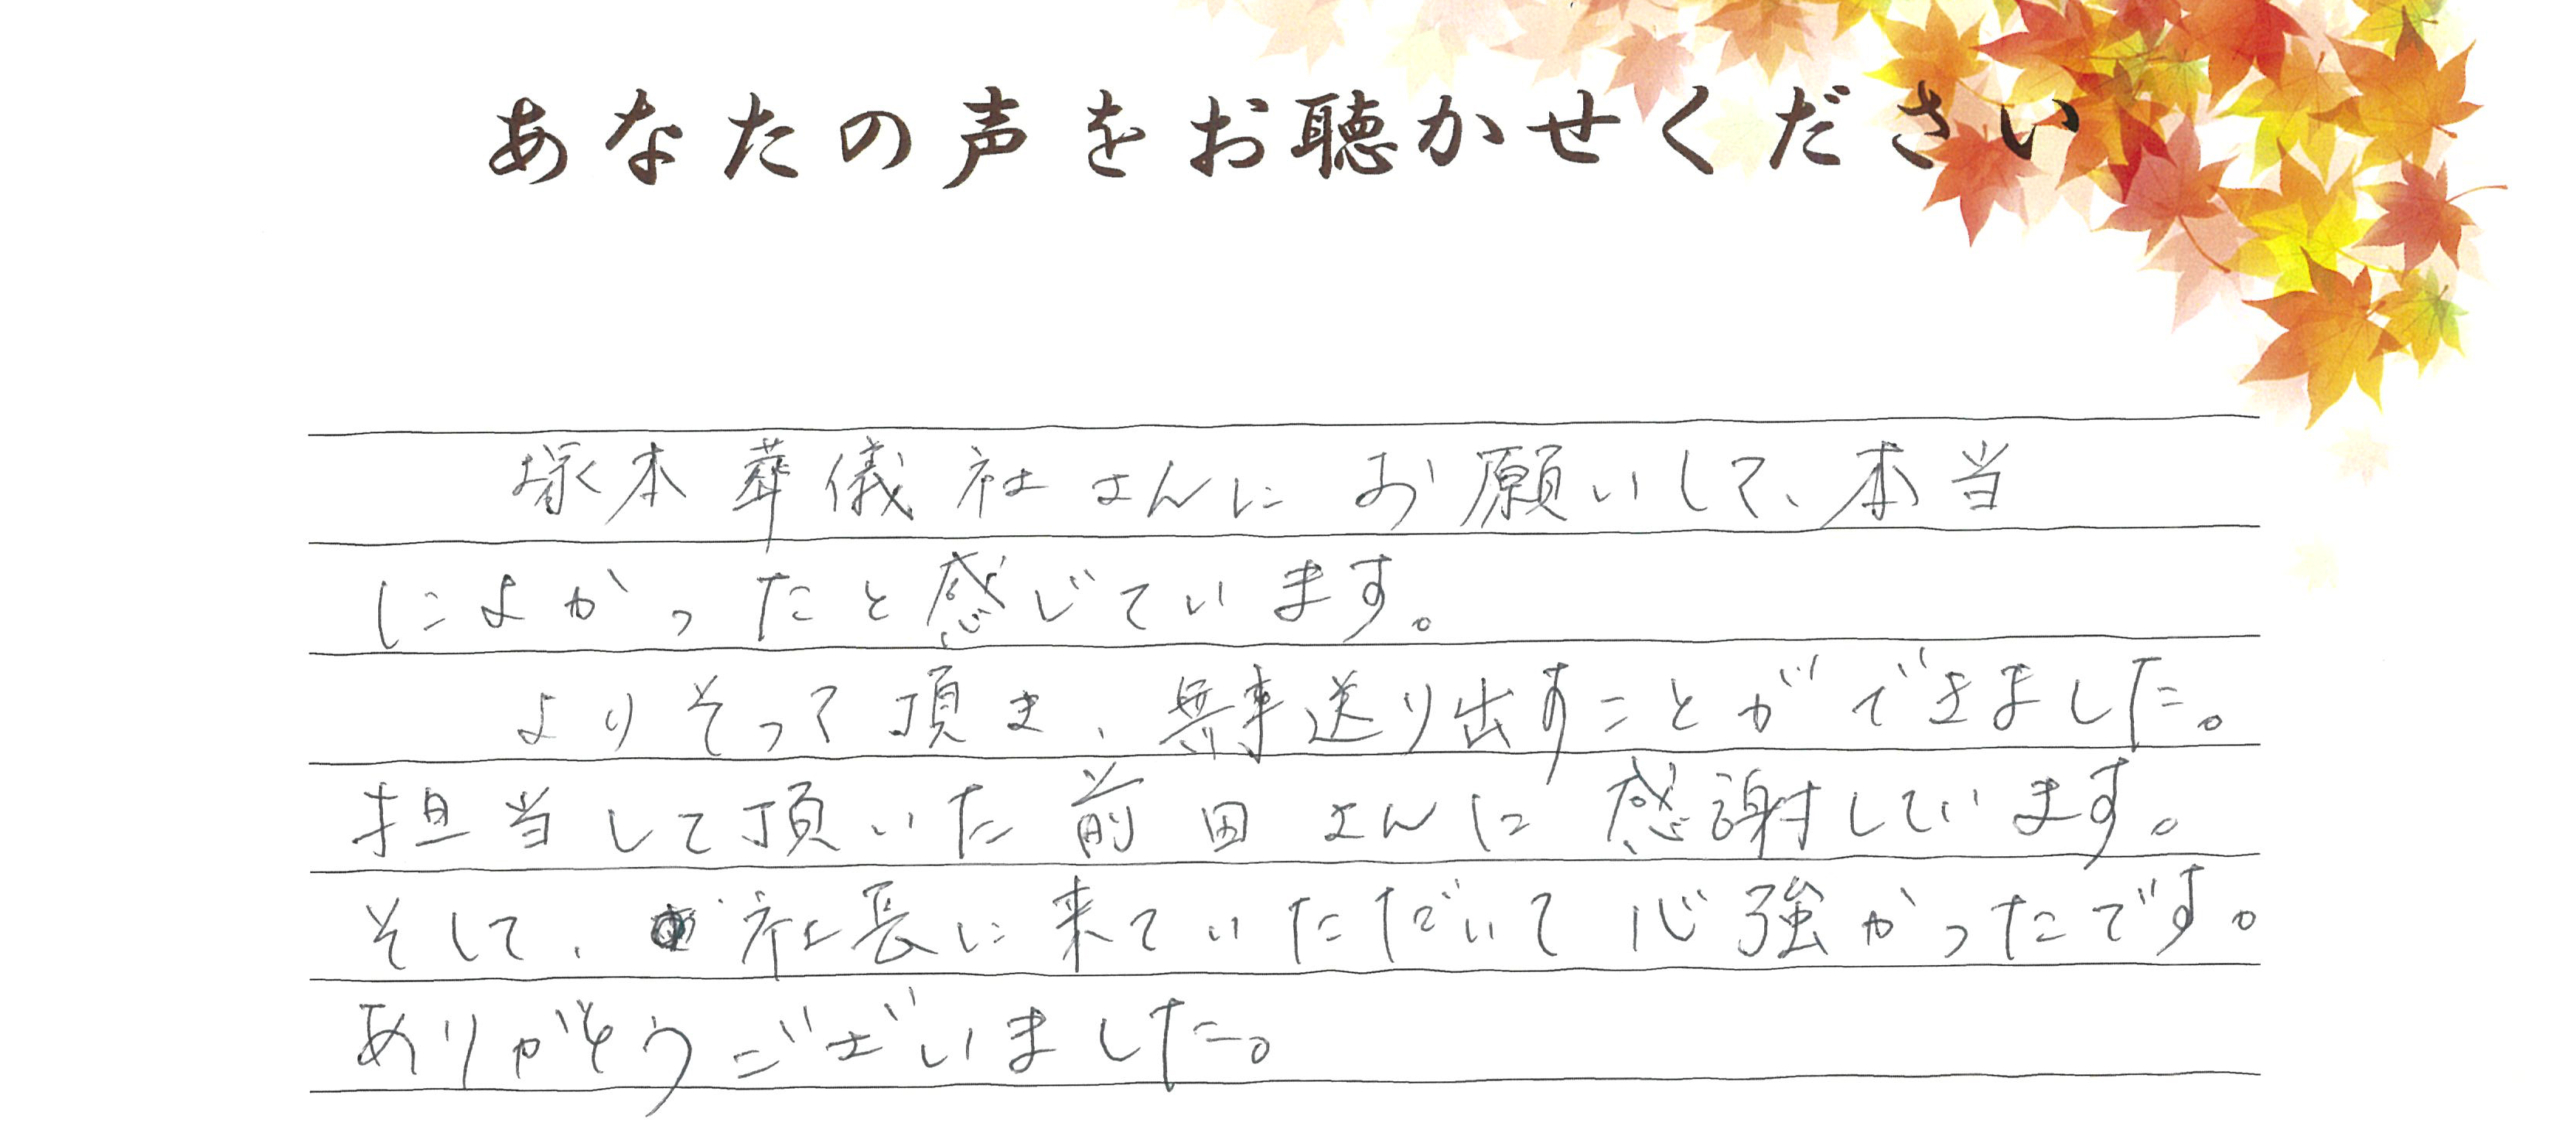 あなたの声をお聴かせください
塚本葬儀社さんにお願いして、本当
によかったと感じています。
よりそって頂き、無事送り出すことができました。
担当して頂いた前田さんに感謝しています。
そして、社長に来ていただいて心強かったです。
ありがとうございました。